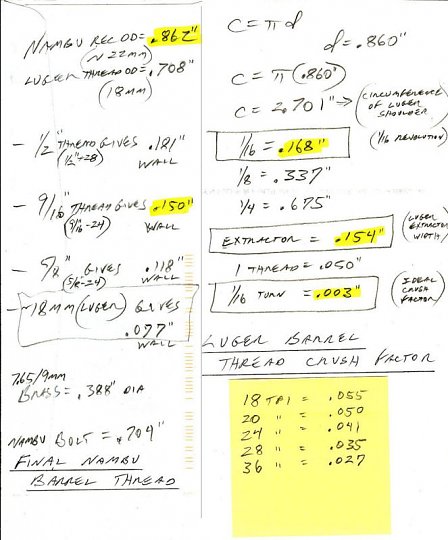 NAMBU REC OD = .862"
(~22mm)
LUGER THREAD OD = .708"
(18mm)
- 1/2" THREAD GIVES .181"
(1/2-28) WALL
- 9/16" THREAD GIVES .150"
(9/16-24) WALL
- 5/8" GIVES .118"
(5/8-24) WALL
- ~18MM (LUGER) GIVES
.077"
WALL
7.65/9mm
BRASS = .388" DIA
NAMBU BOLT = .704"
FINAL NAMBU
BARREL THREAD
C = πd
d = .860"
C = π(.860")
C = 2.701" → (CIRCUMFERENCE
OF LUGER
SHOULDER)
1/16 = .168" (1/16 REVOLUTION)
1/8 = .337"
1/4 = .675"
EXTRACTOR = .154" (LUGER
EXTRACTOR
WIDTH)
1 THREAD = .050"
1/16 TURN = .003" (IDEAL
CRUSH
FACTOR)
LUGER BARREL
THREAD CRUSH FACTOR
18 TPI = .055
20 " = .050
24 " = .041
28 " = .035
36 " = .027